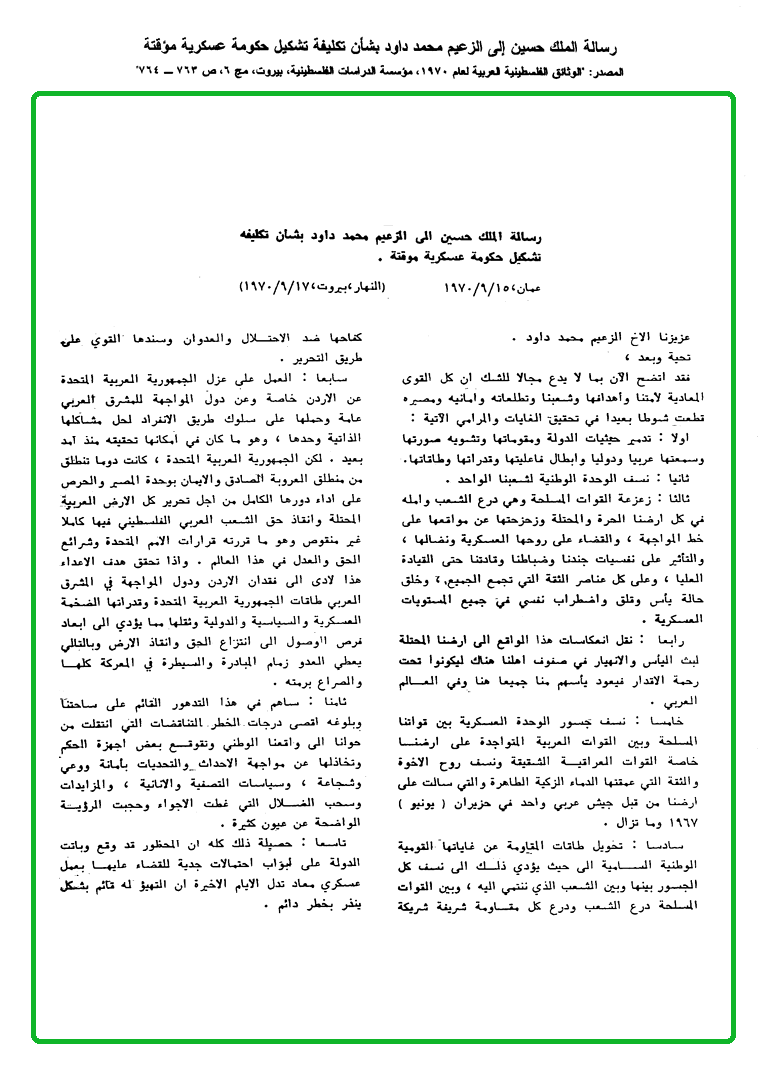 رسالة الملك حسين إلى الزعيم محمد داود بشأن تكليفة تشكيل حكومة عسكرية مؤقتة
المصدر: "الوثائق الفلسطينية العربية لعام ١٩٧٠، مؤسسة الدراسات الفلسطينية، بيروت، مج ٦، ص ٧٦٣ – ٧٦٤"
رسالة الملك حسين الى الزعيم محمد داود بشأن تكليفه
تشكيل حكومة عسكرية موقتة .
عمان، ١٩٧٠/٩/١٥ (النهار، بيروت، ١٩٧٠/٩/١٧)
عزيزنا الاخ الزعيم محمد داود .
تحية وبعد ،
فقد اتضح الآن بما لا يدع مجالا للشك ان كل القوى
المعادية لامتنا واهدافها وشعبنا وتطلعاته وامانيه ومصيره
قطعت شوطا بعيدا في تحقيق الغايات والمرامي الآتية :
اولا : تدمير حيثيات الدولة ومقوماتها وتشويه صورتها
وسمعتها عربيا ودوليا وابطال فاعليتها وقدراتها وطاقاتها.
ثانيا : نسف الوحدة الوطنية لشعبنا الواحد .
ثالثا : زعزعة القوات المسلحة وهي درع الشعب وامله
في كل ارضنا الحرة والمحتلة وزحزحتها عن مواقعها على
خط المواجهة ، والقضاء على روحها العسكرية ونضالها ،
والتأثير على نفسيات جندنا وضباطنا وقادتنا حتى القيادة
العليا ، وعلى كل عناصر الثقة التي تجمع الجميع ، وخلق
حالة يأس وقلق واضطراب نفسي في جميع المستويات
العسكرية .
رابعا : نقل انعكاسات هذا الواقع الى ارضنا المحتلة
لبث اليأس والانهيار في صفوف اهلنا هناك ليكونوا تحت
رحمة الاقدار فيعود يأسهم منا جميعا هنا وفي العالم
العربي .
خامسا : نسف جسور الوحدة العسكرية بين قواتنا
المسلحة وبين القوات العربية المتواجدة على ارضنا
خاصة القوات العراقية الشقيقة ونسف روح الاخوة
والثقة التي عمقتها الدماء الزكية الطاهرة والتي سالت على
ارضنا من قبل جيش عربي واحد في حزيران ( يونيو )
١٩٦٧ وما تزال .
سادسا : تحويل طاقات المقاومة عن غاياتها القومية
الوطنية السامية الى حيث يؤدي ذلك الى نسف كل
الجسور بينها وبين الشعب الذي ننتمي اليه ، وبين القوات
المسلحة درع الشعب ودرع كل مقاومة شريفة شريكة
كفاحها ضد الاحتلال والعدوان وسندها القوي على
طريق التحرير .
سابعا : العمل على عزل الجمهورية العربية المتحدة
عن الاردن خاصة وعن دول المواجهة للمشرق العربي
عامة وحملها على سلوك طريق الانفراد لحل مشاكلها
الذاتية وحدها ، وهو ما كان في امكانها تحقيقه منذ آمد
بعيد . لكن الجمهورية العربية المتحدة ، كانت دوما تنطلق
من منطلق العروبة الصادق والايمان بوحدة المصير والحرص
على اداء دورها الكامل من اجل تحرير كل الارض العربية
المحتلة وانقاذ حق الشعب العربي الفلسطيني فيها كاملا
غير منقوص وهو ما قررته قرارات الامم المتحدة وشرائع
الحق والعدل في هذا العالم . واذا تحقق هدف الاعداء
هذا لادى الى فقدان الاردن ودول المواجهة في المشرق
العربي طاقات الجمهورية العربية المتحدة وقدراتها الضخمة
العسكرية والسياسية والدولية وثقلها مما يؤدي الى ابعاد
فرص الوصول الى انتزاع الحق وانقاذ الارض وبالتالي
يعطي العدو زمام المبادرة والسيطرة في المعركة كلها
والصراع برمته .
ثامنا : ساهم في هذا التدهور القائم على ساحتنا
وبلوغه اقصى درجات الخطر التناقضات التي انتقلت من
حولنا الى واقعنا الوطني وتقوقع بعض اجهزة الحكم
وتخاذلها عن مواجهة الاحداث والتحديات بأمانة ووعي
وشجاعة ، وسياسات التصفية والانانية ، والمزايدات
وسحب الضلال التي غطت الاجواء وحجبت الرؤية
الواضحة عن عيون كثيرة .
تاسعا : حصيلة ذلك كله ان المحظور قد وقع وباتت
الدولة على ابواب احتمالات جدية للقضاء عليها بعمل
عسكري معاد تدل الايام الاخيرة ان التهيؤ له قائم بشكل
ينذر بخطر دائم .